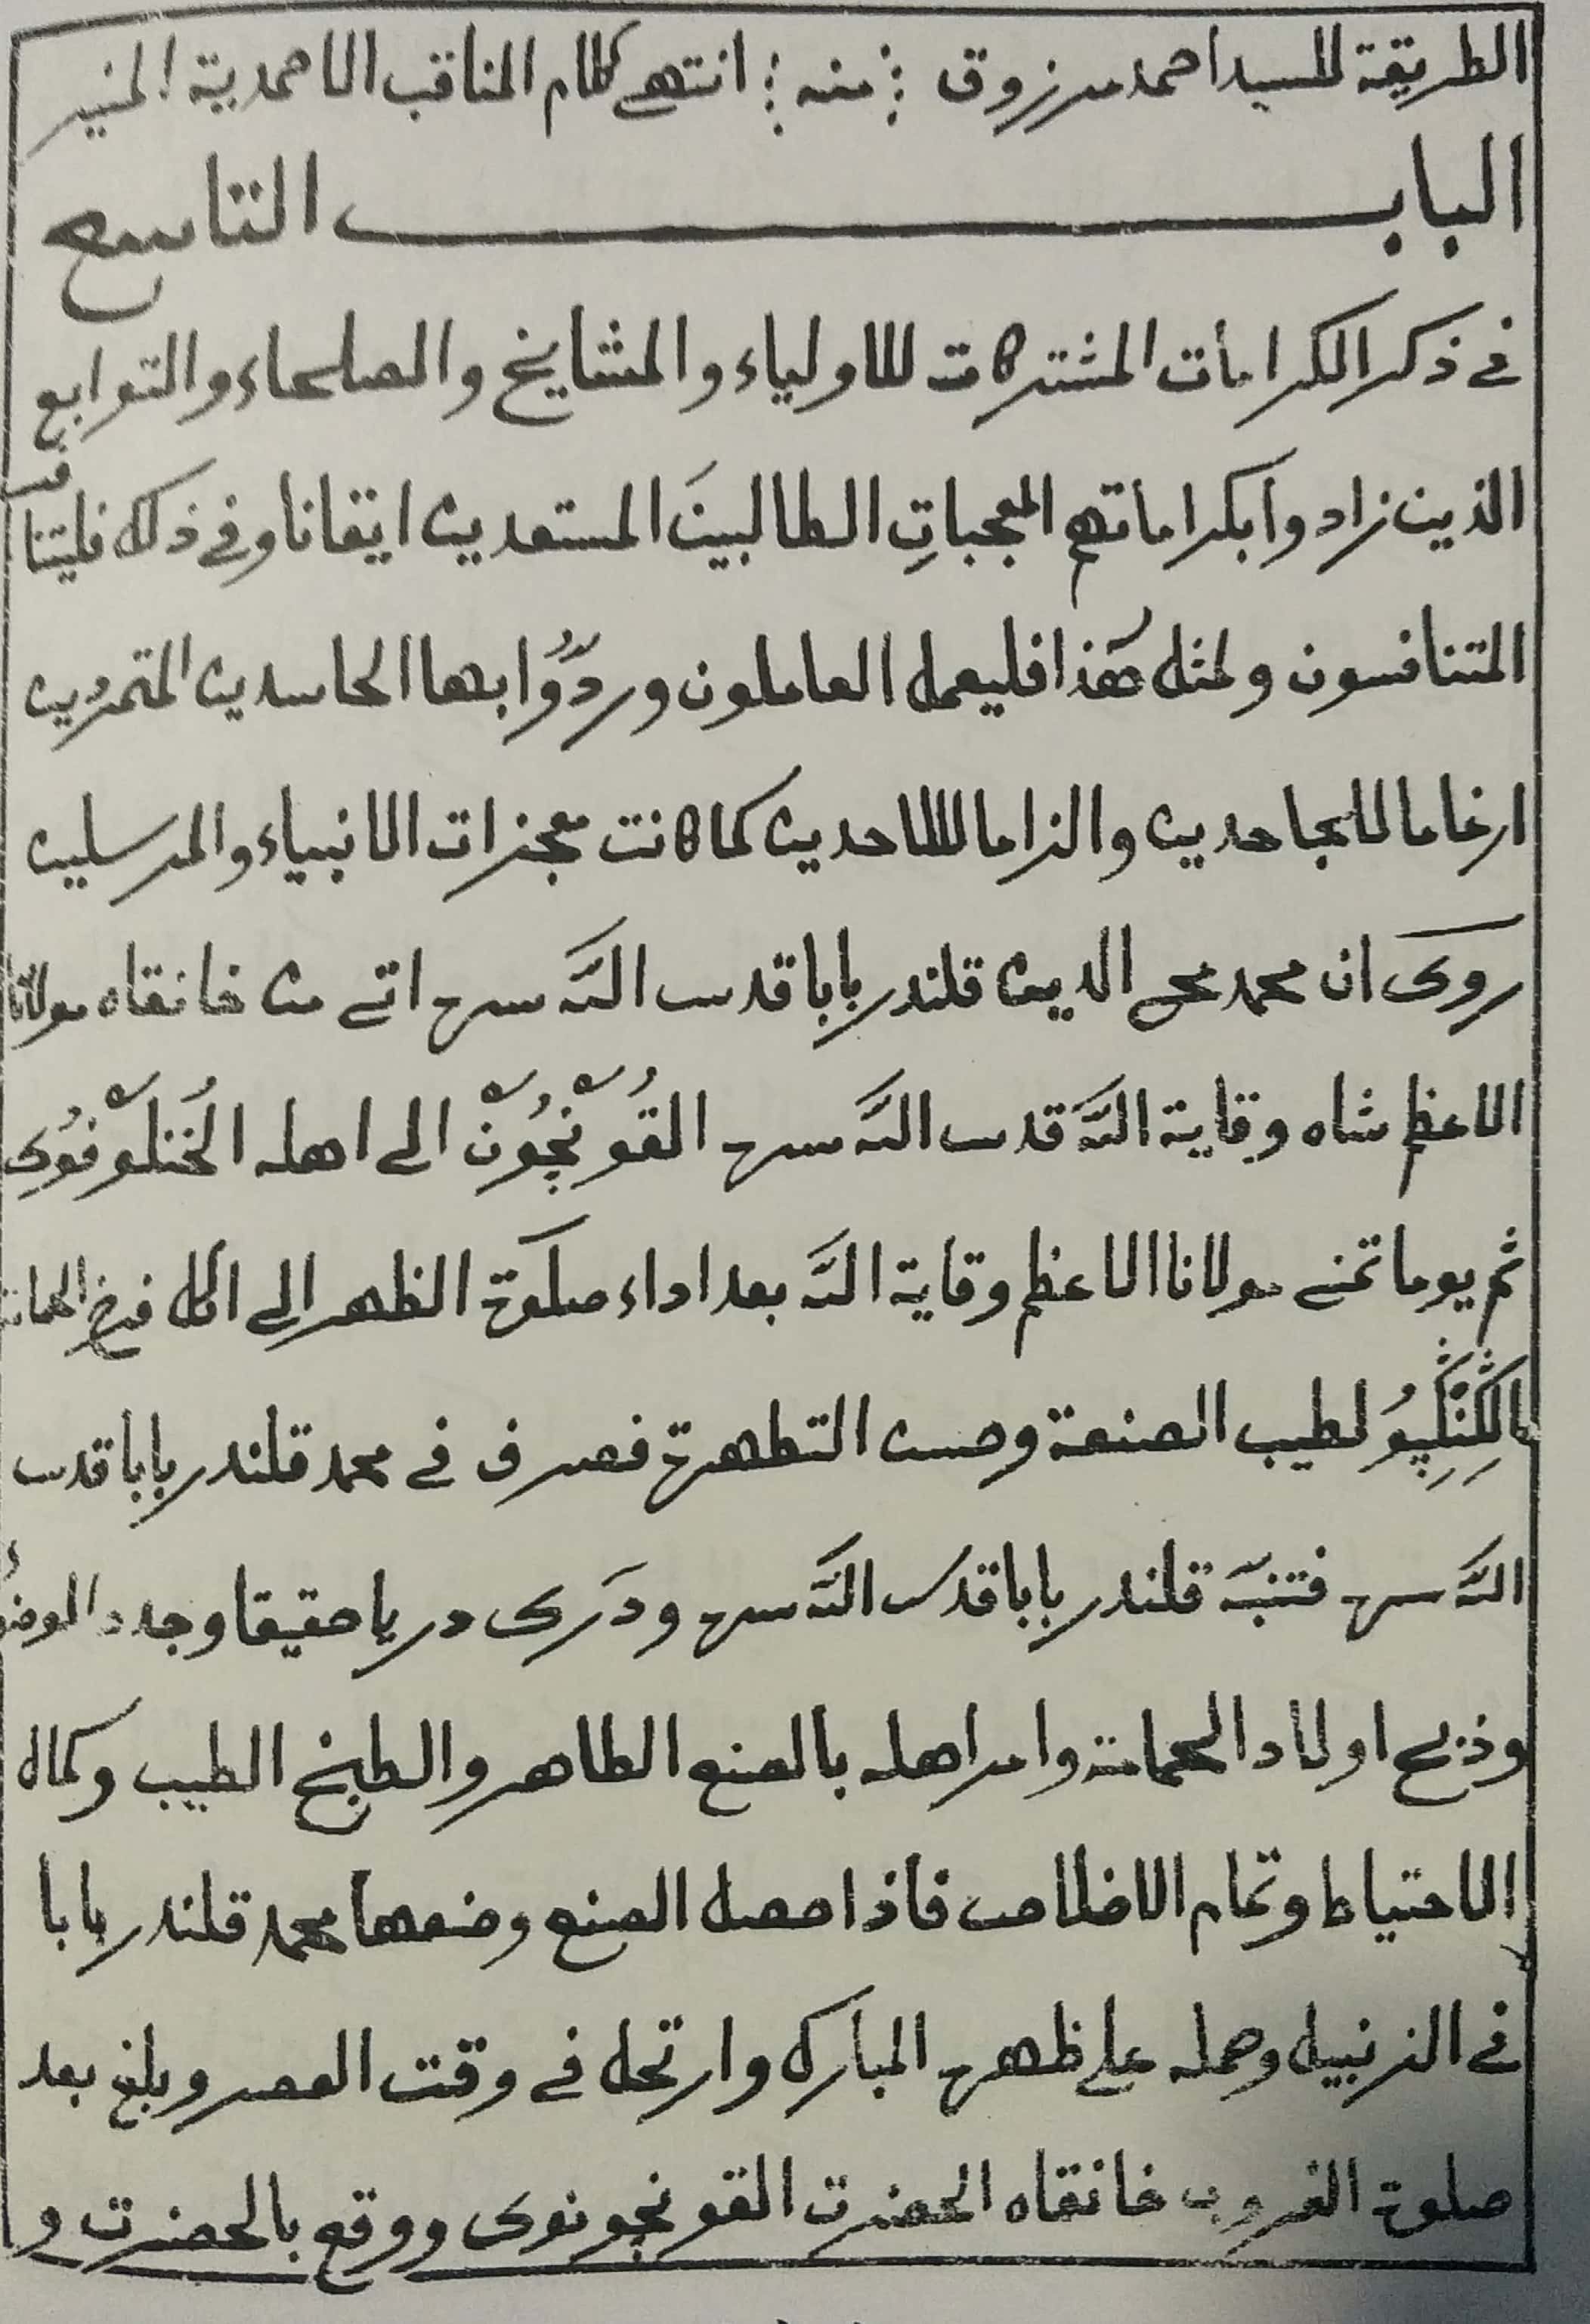 الطريقة للسيد احمد مرزوق ؛ منه ؛ انتهى كلام المناقب الاحمدية المنير
الباب التاسع
فى ذكر الكرامات المشتركات للاولياء والمشايخ والصلحاء والتوابع
الذين زادوا بكراماتهم المعجباتِ الطالبينَ المستعدين ايقانا وفى ذلك فليتنا
المتنافسون ولمثل هٰذا فليعمل العاملون وردُّوا بها الحاسدين المتمرّدين
ارغاما للجاحدين والزاما لللاحدين كما كانت معجزات الانبياء والمرسلين
روى ان محمد محى الدين قلندر بابا قدس الله سره اتى من خانقاه مولانا
الاعظم شاه وقاية الله قدس الله سره القُونْجُونْ الى اهله
ثم يوما تمنى مولانا الاعظم وقاية الله بعد اداء صلٰوة الظهر الى اكل فرخ الحمامة
لطيب الصنعة وحسن التطهرة فصرف فى محمد قلندر بابا قدس
الله سره فتنبّه قلندر بابا قدس الله سره ودَرى دريا حقيقا وجدد الوضوء
وذبح اولاد الحمامة وامر اهله بالصنع الطاهر والطبخ الطيب وكمال
الاحتياط وتمام الاخلاص فاذا حصل الصنع وضعها محمد قلندر بابا
فى الزنبيل وحمله على ظهره المبارك وارتحل فى وقت العصر وبلغ بعد
صلوة الغروب خانقاه الحضرت القونجونوى ووقع بالحضرت و